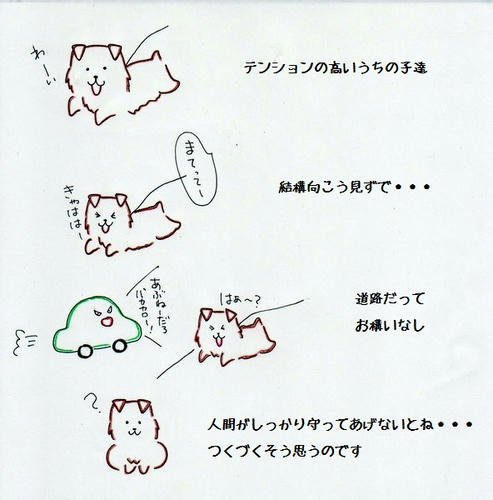 わーい
テンションの高いうちの子達
まてってー
きゃははー
結構向こう見ずで・・・
あぶねーだろ
バカヤロー！
はぁ～？
道路だって
お構いなし
？
人間がしっかり守ってあげないとね・・・
つくづくそう思うのです